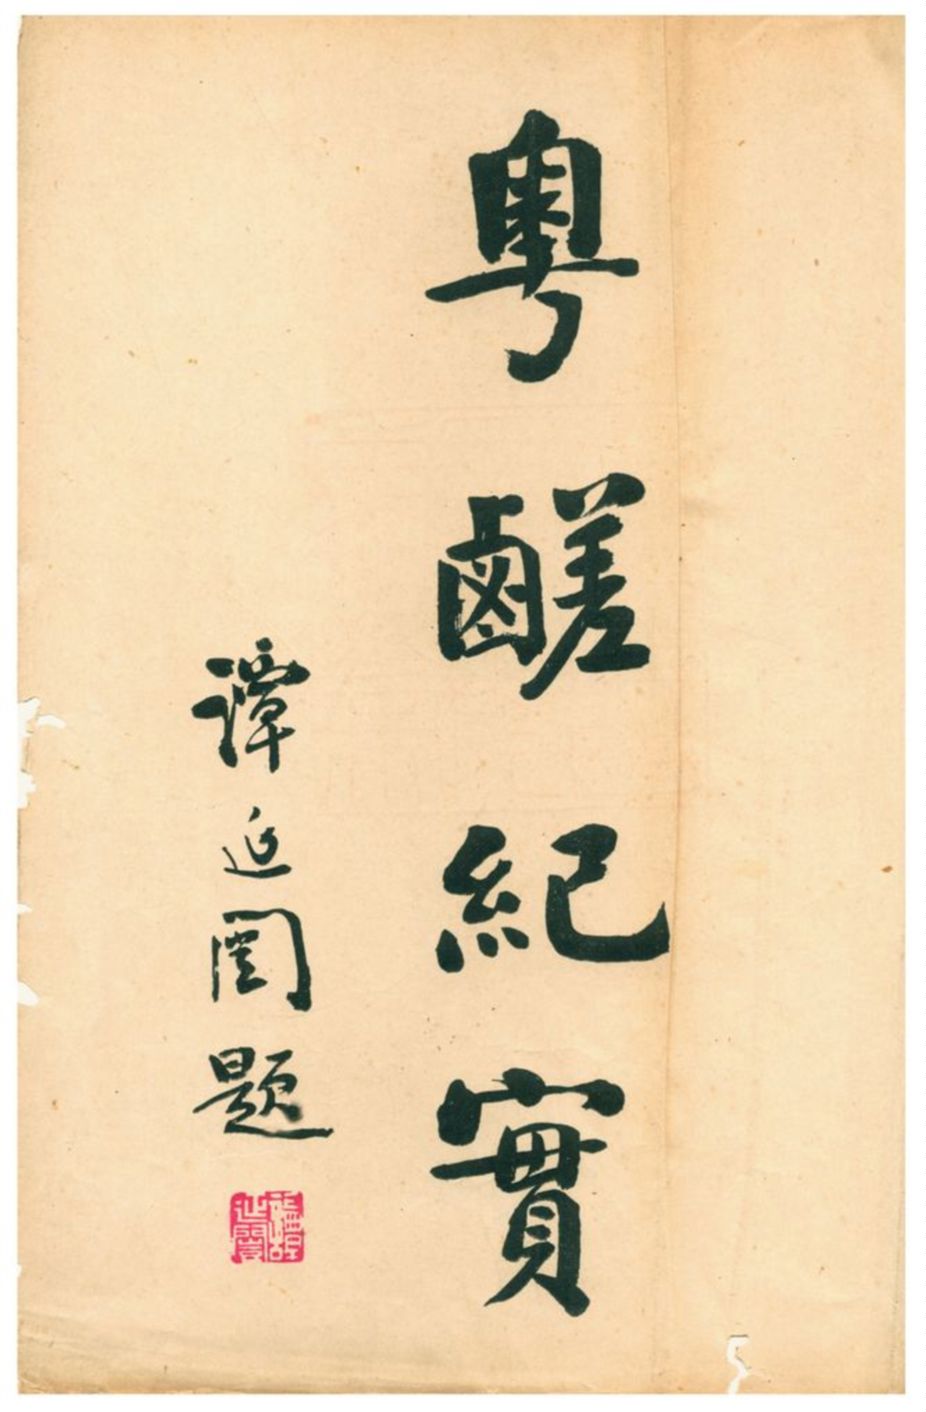 粤鹺紀實
譚延闓題